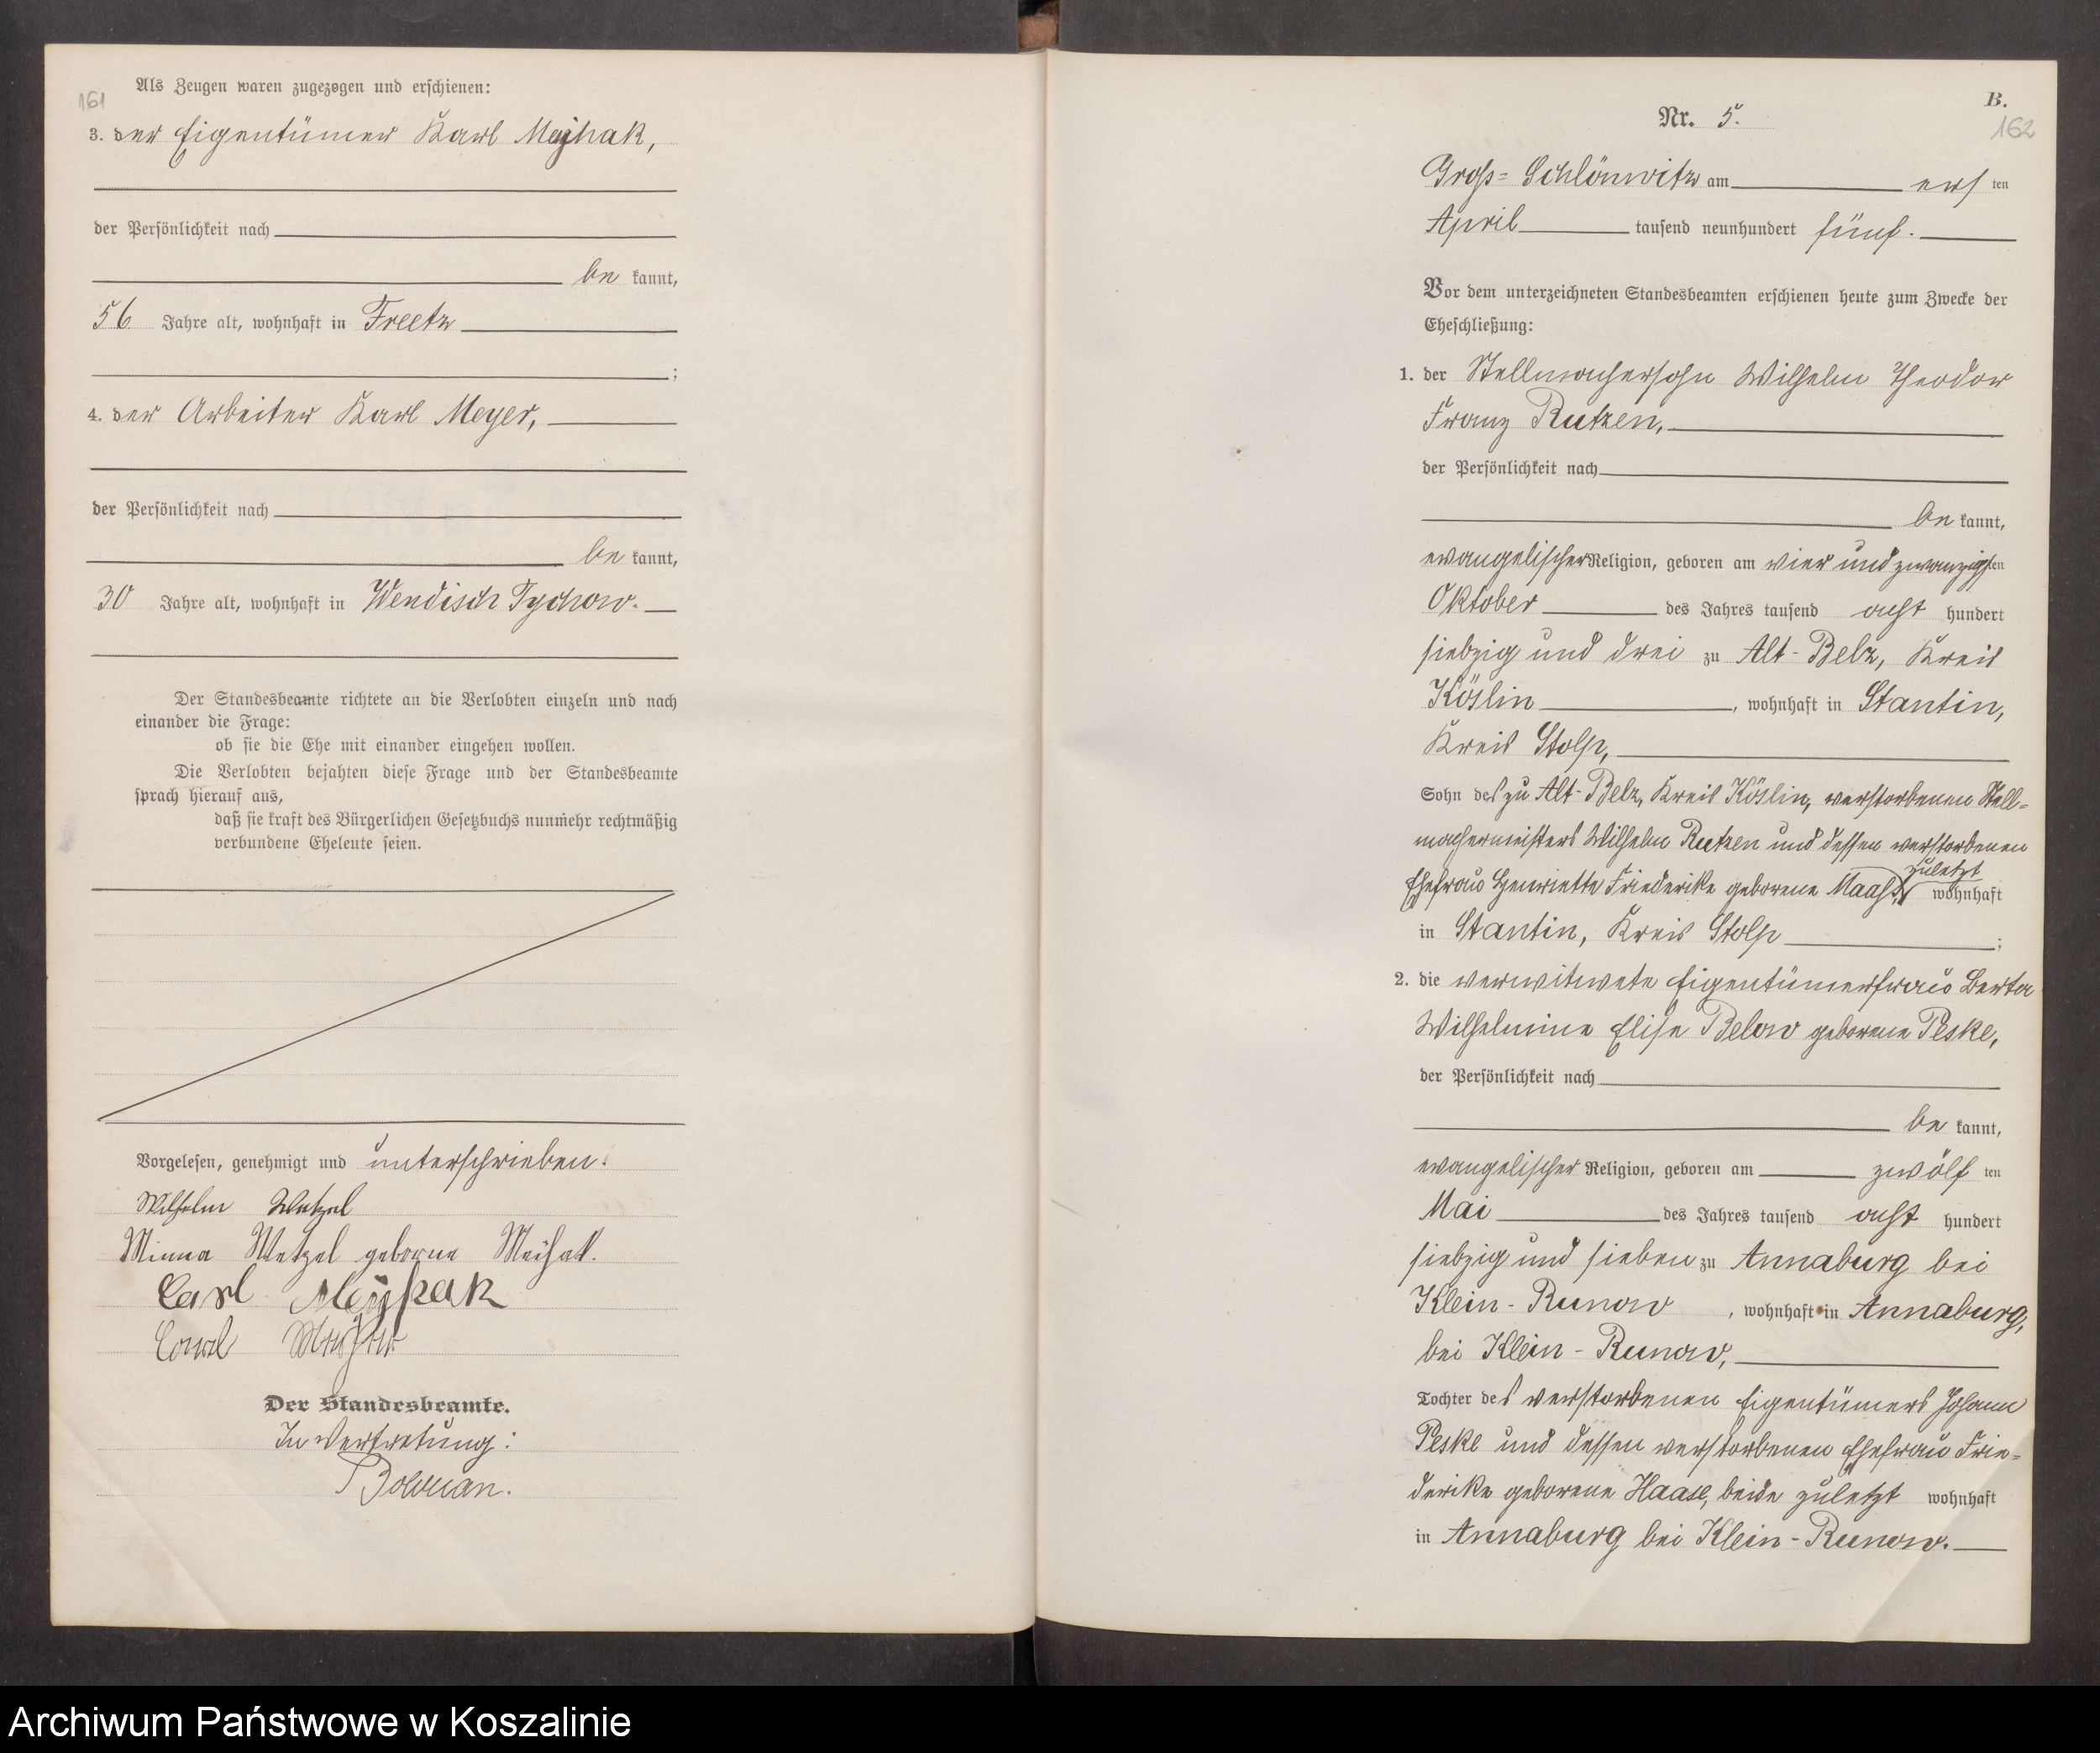 161
Als Zeugen waren zugezogen und erschienen:
3. der Eigentümer Karl Mejhak,
der Persönlichkeit nach
be kannt,
56 Jahre alt, wohnhaft in Freetz
;
4. der Arbeiter Karl Meyer,
der Persönlichkeit nach
be kannt,
30 Jahre alt, wohnhaft in Wendisch Tychow.
Der Standesbeamte richtete an die Verlobten einzeln und nach
einander die Frage:
ob sie die Ehe mit einander eingehen wollen.
Die Verlobten bejahten diese Frage und der Standesbeamte
sprach hierauf aus,
daß sie kraft des Bürgerlichen Gesetzbuchs nunmehr rechtmäßig
verbundene Eheleute seien.
Vorgelesen, genehmigt und unterschrieben.
Wilhelm Wetzel
Minna Wetzel geborne Meihak.
Carl Meyhak
Carl
Der Standesbeamte.
In Vertretung:
B.
162
Nr. 5.
Gross-Schlönwitz am ersten
April tausend neunhundert fünf.
Vor dem unterzeichneten Standesbeamten erschienen heute zum Zwecke der
Eheschließung:
1. der Stellmachersohn Wilhelm Theodor
Franz Rutzen,
der Persönlichkeit nach
be kannt,
evangelischer Religion, geboren am vier und zwanzigsten
Oktober des Jahres tausend acht hundert
siebzig und drei zu Alt-Belz, Kreis
Köslin, wohnhaft in Stantin,
Kreis Stolp,
Sohn des zu Alt-Belz, Kreis Köslin, verstorbenen Stell-
machermeisters Wilhelm Rutzen und dessen verstorbenen
Ehefrau Henriette Friederike geborene Maass, zuletzt wohnhaft
in Stantin, Kreis Stolp;
2. die verwitwete Eigentümerfrau Berta
Wilhelmine Elise Below geborene Peske,
der Persönlichkeit nach
be kannt,
evangelischer Religion, geboren am zwölf ten
Mai des Jahres tausend acht hundert
siebzig und sieben zu Annaburg bei
Klein-Runow, wohnhaft in Annaburg,
bei Klein-Runow,
Tochter des verstorbenen Eigentümers Johann
Peske und dessen verstorbenen Ehefrau Frie-
derike geborene Haase, beide zuletzt wohnhaft
in Annaburg bei Klein-Runow.
Archiwum Państwowe w Koszalinie